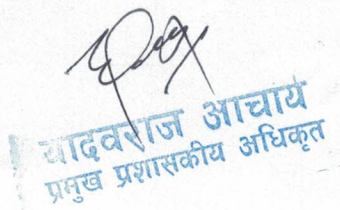 यादवराज आचार्य
प्रमुख प्रशासकीय अधिकृत